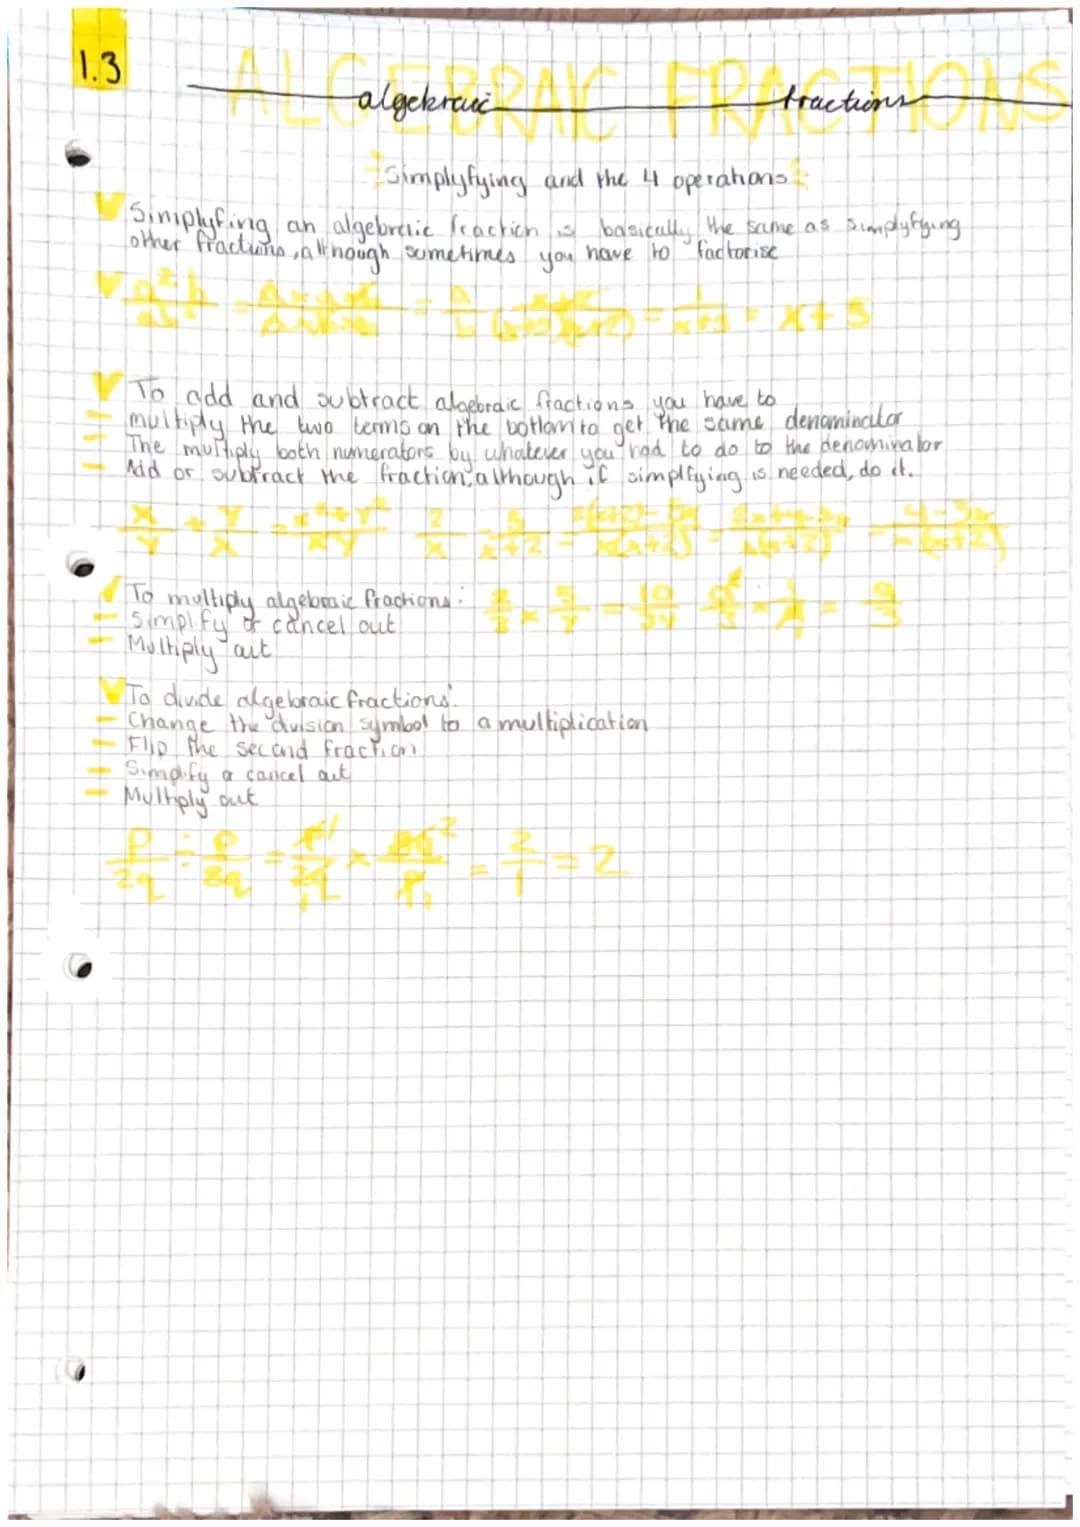 1.3
ALGEBRAIC FRACTIONS
algebraic fractions
Simplyfying and the 4 operations
Simplyfing an algebraic fraction is basically the same as simplyfying
other fractions, although sometimes you have to factorise
= x + 3
To add and subtract algebraic fractions you have to
multiply the two terms on the bottom to get the same denominator
The multiply both numerators by whatever you had to do to the denominator
Add or subtract the fraction, although if simplfying is needed, do it.
x/y + y/x = x²+y²/xy
To multiply algebraic fractions:
Simplify or cancel out
Multiply out
To divide algebraic fractions:
Change the division symbol to a multiplication
Flip the second fraction
Simplify a cancel out
Multiply out
p/2q ÷ p/8q = = 2/1 = 2